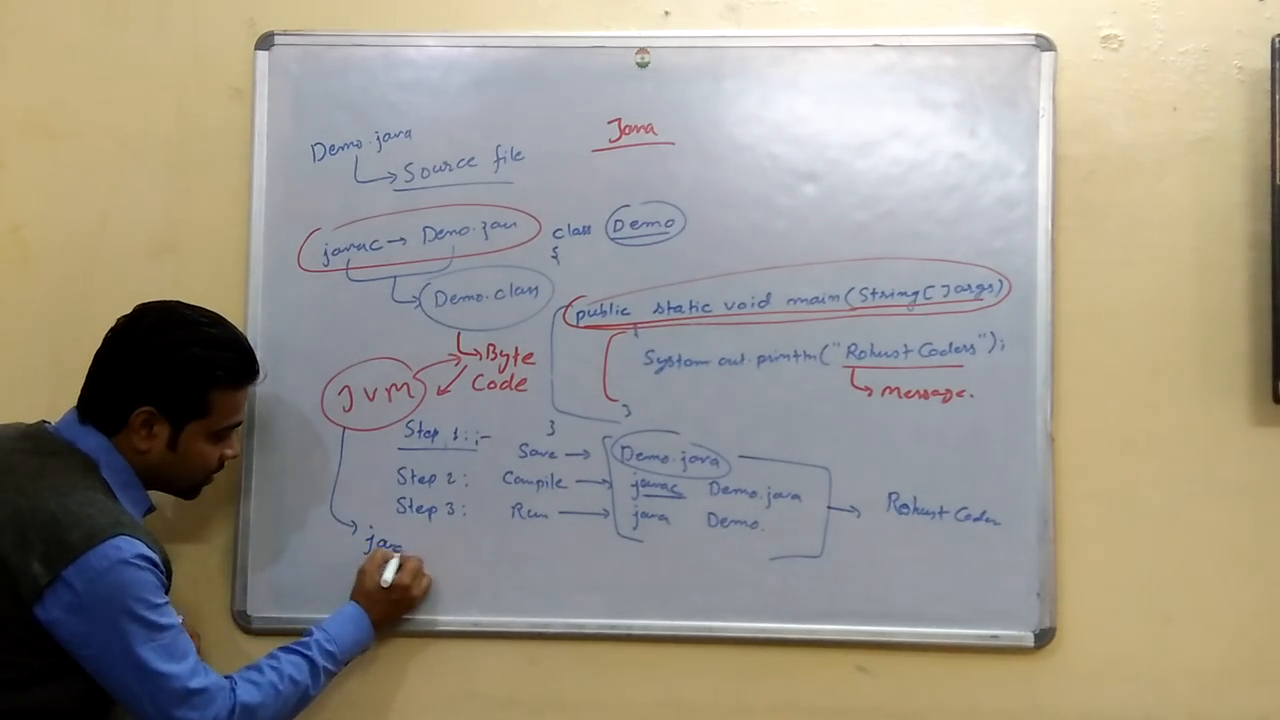 Java
Demo.java
Source file
javac → Demo.java
class Demo
{
Demo.class
public static void main(String[] args)
{
System.out.println("Robust Coders");
Message.
}
}
Byte
Code
JVM
Step 1:- Save → Demo.java
Step 2: Compile → javac Demo.java
Step 3: Run → java Demo.
Robust Coder
jav